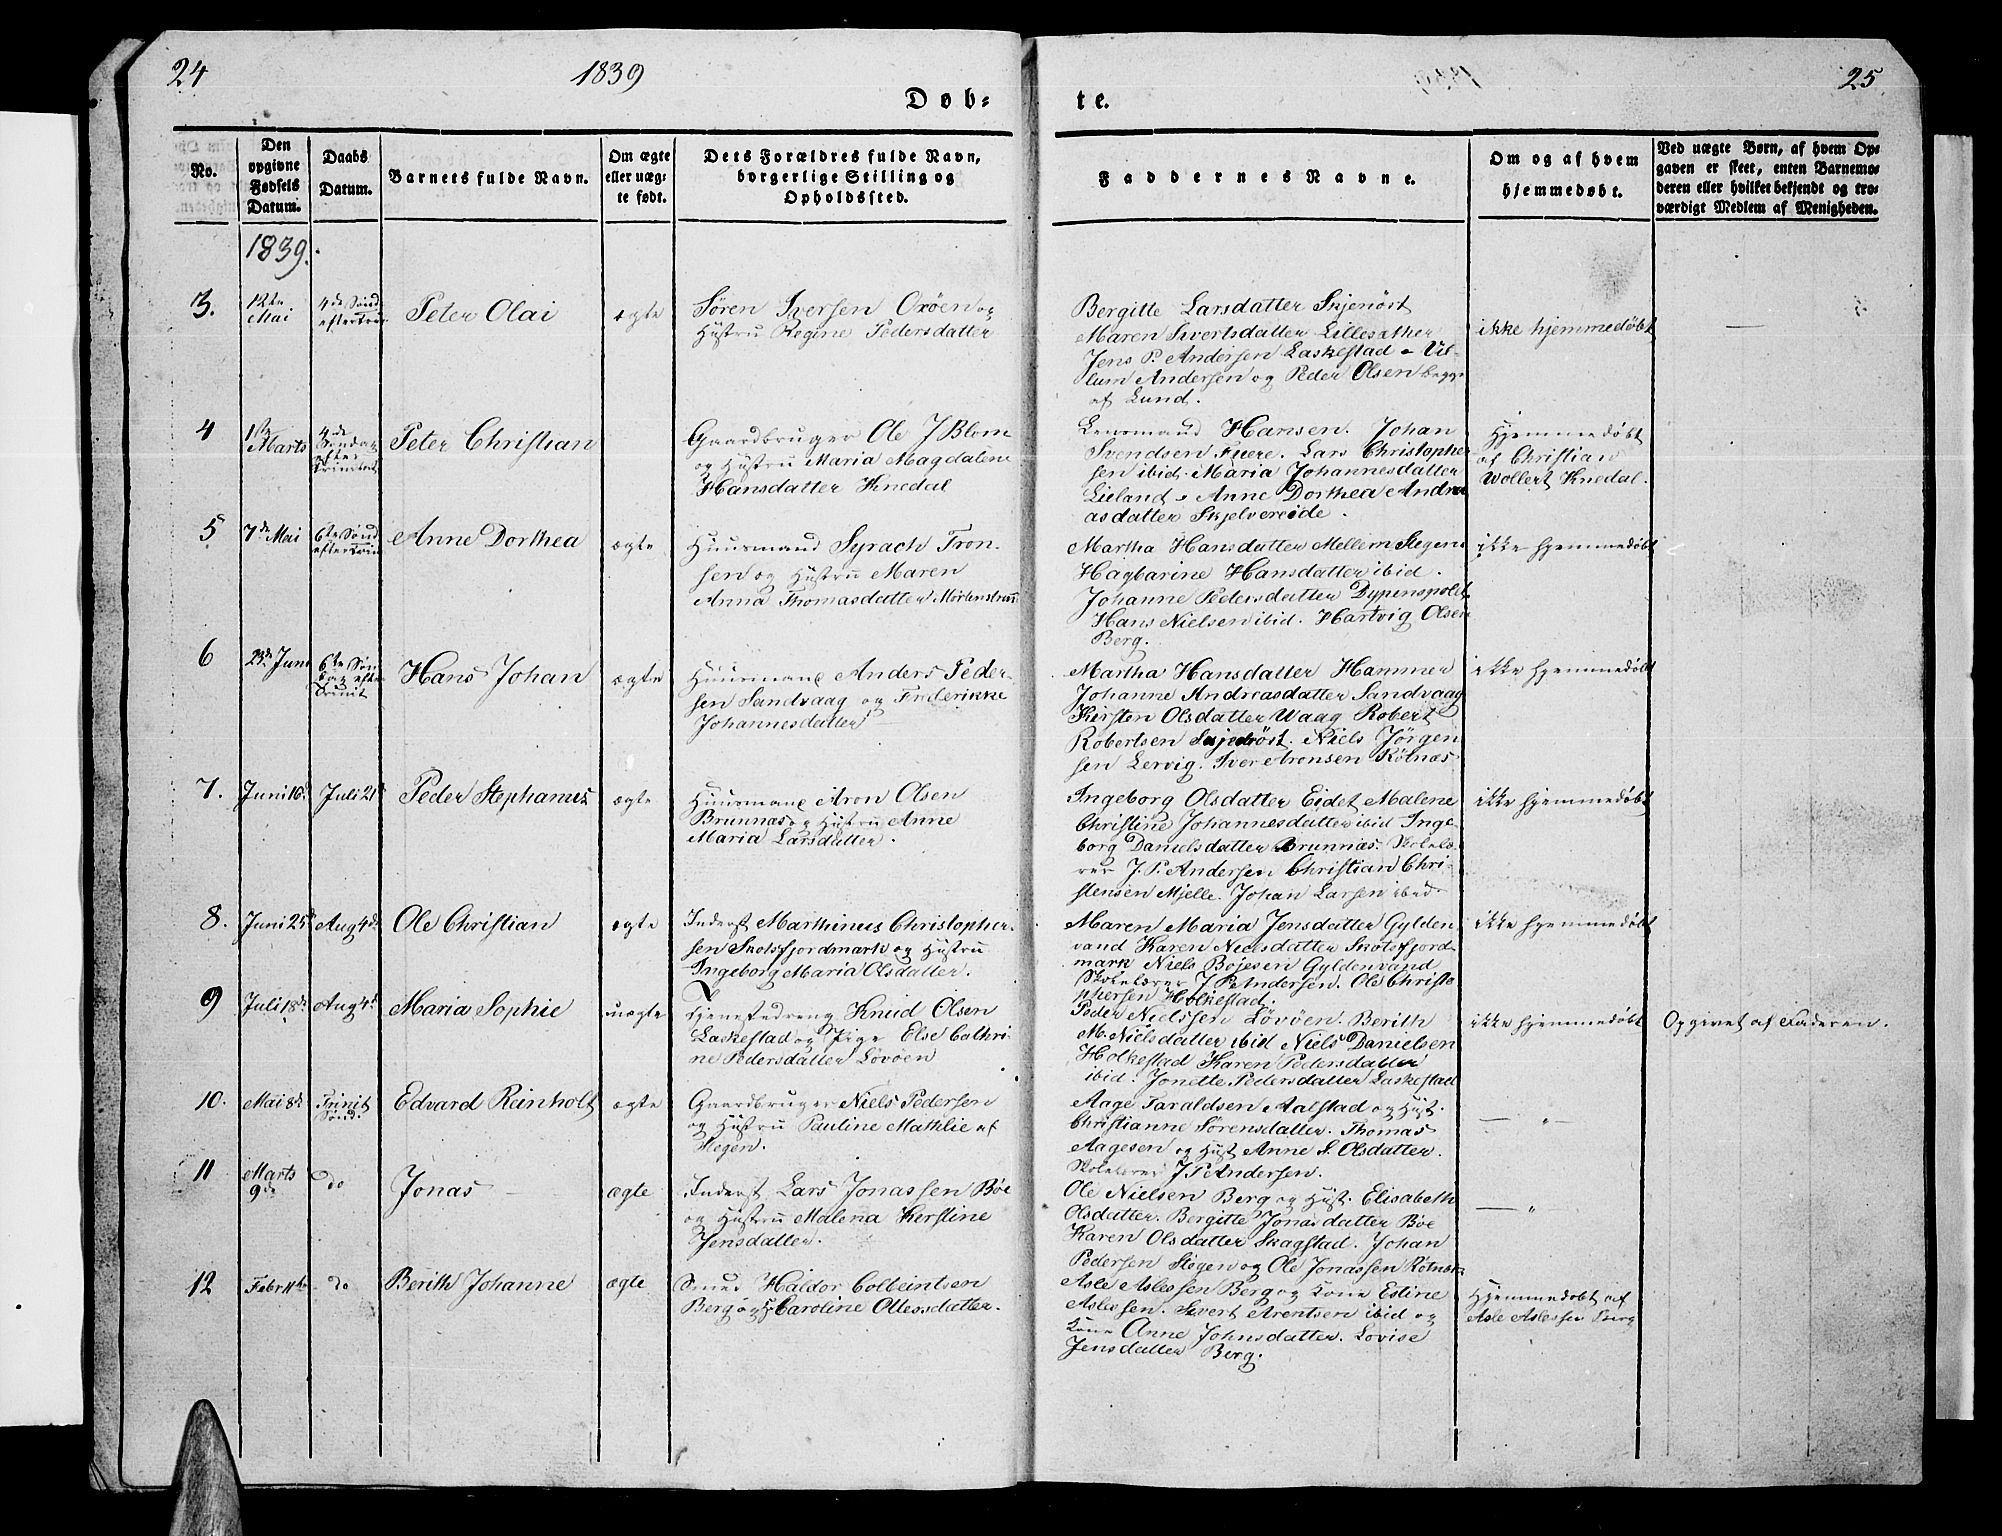 24
1839
Døb-
te.
25
No.
Den opgivne Fødsels Datum.
Daabs Datum.
Barnets fulde Navn.
Om ægte eller uægte født.
Dets Forældres fulde Navn, borgerlige Stilling og Opholdssted.
Faddernes Navne.
Om og af hvem hjemmedøbt.
Ved uægte Børn, af hvem Opgaven er skeet, enten Barnemoderen eller hvilket bekjendt og troværdigt Medlem af Menigheden.
1839.
3.
12te Mai
4de Sønd. efter Trin
Peter Olai
ægte
Søren Iversen Oxöen og
Hustru Regine Pedersdatter
Bergitte Larsdatter
Maren Sivertsdatter
Jens P. Andersen Laskestad - Vil-
lum Andersen og Peder Olsen begge
af Lund.
ikke hjemmedøbt
—
4
1ste Marts
4de Søndag efter Trinitat
Peter Christian
Gaardbruger Ole J Blom
og Hustru Maria Magdalene
Hansdatter Knedal
Lensmand Hansen. Johan
Svendsen Fuere. Lars Christopher
sen ibid. Maria Johannesdatter
Lieland - Anne Dorthea Andre
asdatter Skjelvereide.
Hjemmedøbt
af Christian
Wollert Knedal.
5
7de Mai
6te Sønd efter Trin
Anne Dorthea
ægte
Huusmand Syrach Tron-
sen og Hustru Maren
Anna Thomasdatter
Martha Hansdatter Mellem Stegen
Hagbarine Hansdatter ibid.
Johanne Pedersdatter Dypenspolet
Hans Nielsen ibid. Hartvig Olsen
Berg.
ikke hjemmedøbt
6
23de Juni
6te Søndag efter Trinit
Hans Johan
ægte
Huusmand Anders Peder-
sen Sandvaag og Frederikke
Johannesdatter
Martha Hansdatter Hammer
Johanne Andreasdatter Sandvaag
Kirsten Olsdatter Waag Robert
Robertsen Niels Jörgen
sen Lervig. Iver Arensen Rötnæs
ikke hjemmedøbt
7.
Juni 10de
Juli 21
Peder Stephanus
ægte
Huusmand Aron Olsen
Brunnæs og Hustru Anne
Maria Larsdatter.
Ingeborg Olsdatter Eidet Malene
Christine Johannesdatter ibid Inge-
borg Danielsdatter Brunnæs. Skolelæ-
rer J. P. Andersen Christian Chri-
stensen Mjelle. Johan Larsen ibid
ikke hjemmedøbt
8.
Juni 25
Aug 4de
Ole Christian
ægte
Inderst Marthinus Christopher-
sen Skotsfjordmark og Hustru
Ingeborg Maria Olsdatter.
Maren Maria Jensdatter Gylden
vand Karen Nielsdatter Skotsfjord
mark Niels Bojesen Gyldenvand
Skolelærer J P Andersen. Ole Christo
phersen Holkestad.
ikke hjemmedøbt
9
Juli 18de
Aug 4de
Maria Sophie
uægte
Tjenestedreng Knud Olsen
Laskestad og Pige Else Cathri-
ne Pedersdatter Lövöen
Peder Nielssen Lövöen. Berith
M. Nielsdatter ibid Niels Danielsen
Holkestad Karen Pedersdatter
ibid. Jonette Pedersdatter Laskestad
ikke hjemmedøbt
Opgivet af Faderen.
10.
Mai 8de
Trinit Sönd.
Edvard Reinholt
ægte
Gaardbruger Niels Pedersen
og Hustru Pauline Mathlie af
Stegen.
Aage Taraldsen Aalstad og Hust.
Christianne Sørensdatter. Thomas
Aagesen og Hust Anne S. Olsdatter.
Skolelærer J P Andersen.
— " —
11
Marts 9de
do
Jonas
ægte
Inderst Lars Jonassen Böe
og Hustru Malena Kerstine
Jensdatter.
Ole Nielsen Berg og Hust. Elisabeth
Olsdatter. Bergitte Jonasdatter Böe
Karen Olsdatter Skagstad. Johan
Pedersen Stegen og Ole Jonassen Rötnæs
— "
12
Febr 11te
do
Berith Johanne
ægte
Smed Haldor Colbeintsen
Berg og H Caroline Ollessdatter.
Asle Aslessen Berg og Kone Estine
Aslessen. Sivert Arentsen ibid og
Kone Anne Johnsdatter. Lovise
Jensdatter Berg.
Hjemmedøbt af
Asle Aslessen Berg